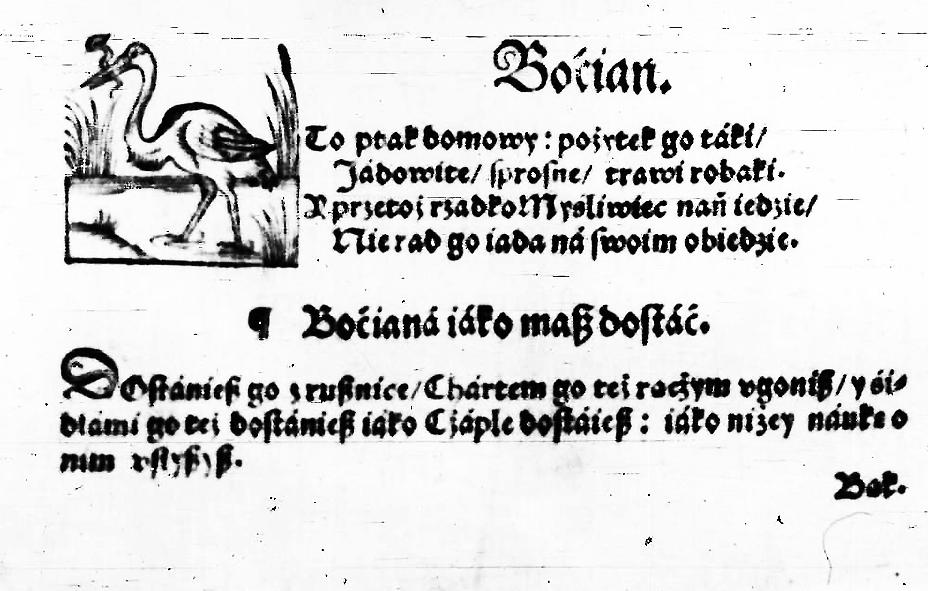 Boćian.
To ptak domowy : pożytek go táki/
Jádowite/ sprosne/ trawi robaki.
A przetoż rzadko Mysliwiec nań iedzie/
Nierad go iada ná swoim obiedzie.
¶ Boćianá iáko masz dostáć.
DOstániesz go z rusznice/ Chártem go też raczym vgonisz/ y śi⸗
dłami go też dostániesz iáko Czáple dostáiesz : iáko niżey náukę o
nim vsłyszysz.
Bąk.